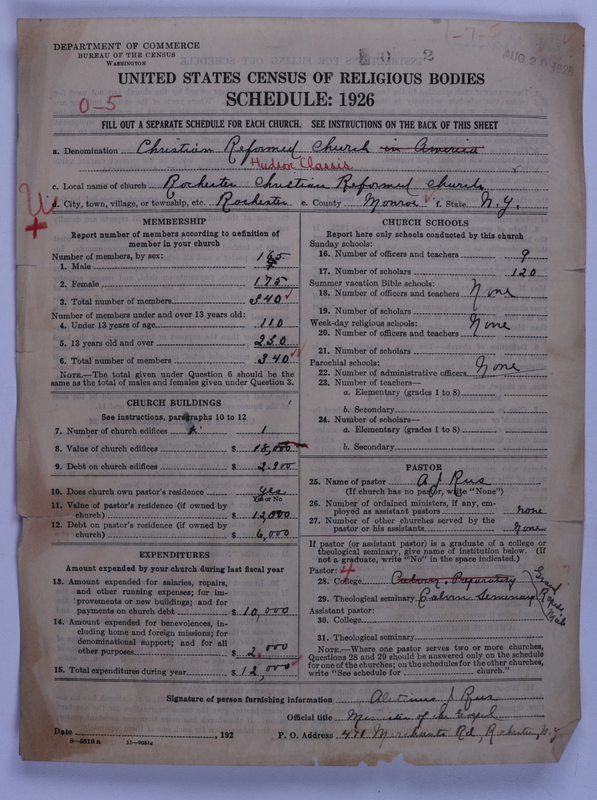 DEPARTMENT OF COMMERCE
BUREAU OF THE CENSUS
WASHINGTON
2
1-7-5
AUG 2 1926
UNITED STATES CENSUS OF RELIGIOUS BODIES
SCHEDULE: 1926
0-5
FILL OUT A SEPARATE SCHEDULE FOR EACH CHURCH. SEE INSTRUCTIONS ON THE BACK OF THIS SHEET
a. Denomination Christian Reformed Church in America
Hudson Classis
c. Local name of church Rochester Christian Reformed Church
d. City, town, village, or township, etc. Rochester e. County Monroe f. State N.Y.
U
MEMBERSHIP
Report number of members according to definition of member in your church
Number of members, by sex:
1. Male 165
2. Female 175
3. Total number of members 340
Number of members under and over 13 years old:
4. Under 13 years of age 110
5. 13 years old and over 230
6. Total number of members 340
NOTE.—The total given under Question 6 should be the
same as the total of males and females given under Question 3.
CHURCH BUILDINGS
See instructions, paragraphs 10 to 12
7. Number of church edifices 1
8. Value of church edifices $ 18,000
9. Debt on church edifices $ 2,900
10. Does church own pastor's residence yes
Yes or No
11. Value of pastor's residence (if owned by
church) $ 12,000
12. Debt on pastor's residence (if owned by
church) $ 6,000
EXPENDITURES
Amount expended by your church during last fiscal year
13. Amount expended for salaries, repairs,
and other running expenses; for im-
provements or new buildings; and for
payments on church debt $ 10,000
14. Amount expended for benevolences, in-
cluding home and foreign missions; for
denominational support; and for all
other purposes $ 2,000
15. Total expenditures during year $ 12,000
CHURCH SCHOOLS
Report here only schools conducted by this church
Sunday schools:
16. Number of officers and teachers 9
17. Number of scholars 120
Summer vacation Bible schools:
18. Number of officers and teachers None
19. Number of scholars
Week-day religious schools:
20. Number of officers and teachers None
21. Number of scholars
Parochial schools:
22. Number of administrative officers None
23. Number of teachers—
a. Elementary (grades 1 to 8)
b. Secondary
24. Number of scholars—
a. Elementary (grades 1 to 8)
b. Secondary
PASTOR
25. Name of pastor A J Rus
(If church has no pastor, write "None")
26. Number of ordained ministers, if any, em-
ployed as assistant pastors none
27. Number of other churches served by the
pastor or his assistants None
If pastor (or assistant pastor) is a graduate of a college or
theological seminary, give name of institution below. (If
not a graduate, write "No" in the space indicated.)
Pastor: 4
28. College Calvin Preparatory
29. Theological seminary Calvin Seminary
Grand Rapids Mich
Assistant pastor:
30. College
31. Theological seminary
NOTE.—Where one pastor serves two or more churches,
Questions 28 and 29 should be answered only on the schedule
for one of the churches; on the schedules for the other churches,
write "See schedule for church."
Signature of person furnishing information J Rus
Official title Minister of the Gospel
Date , 192 P. O. Address 471 Merchants Rd, Rochester, N.Y.